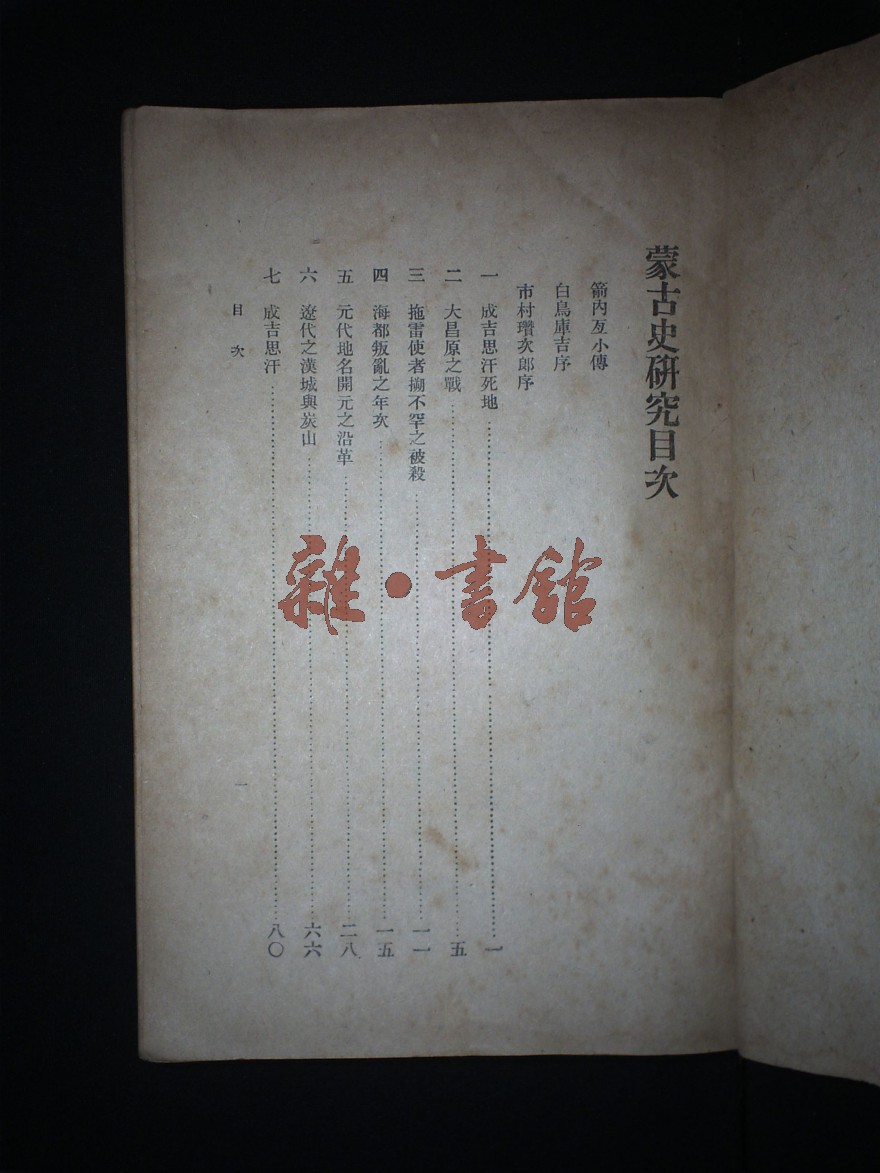 蒙古史硏究目次
箭內亙小傳
白鳥庫吉序
市村瓚次郎序
一 成吉思汗死地 一
二 大昌原之戰 五
三 拖雷使者搠不罕之被殺 一一
四 海都叛亂之年次 一五
五 元代地名開元之沿革 二八
六 遼代之漢城與炭山 六六
七 成吉思汗 八〇
目次 一
雜·書館